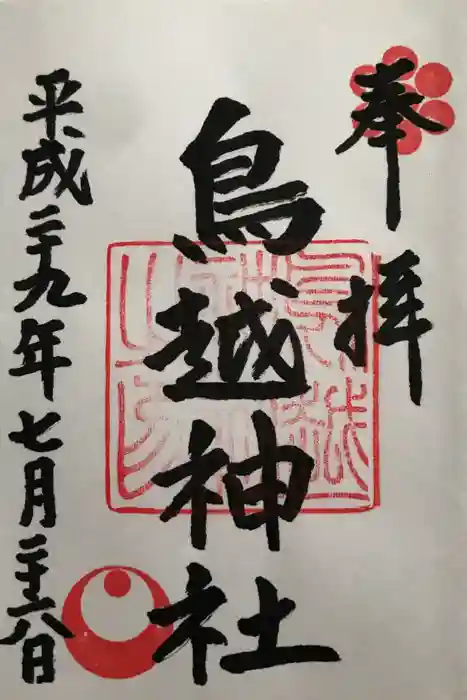 奉拝
鳥越神社
平成二十九年七月二十六日